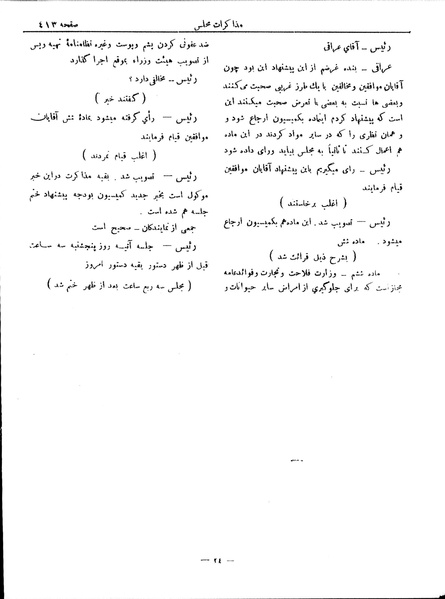 مذاکرات مجلس
صفحه ٤١٣
رئیس ــ آقای عراقی
عراقی ــ بنده غرضم از این پیشنهاد این بود چون
آقایان موافقین و مخالفین با یك طرز غریبی صحبت می‌کنند
و بعضی‌ها نسبت به بعضی با تعرض صحبت میکنند این
است که پیشنهاد کردم اینماده بکمیسیون ارجاع شود و
و همان نظری را که در سایر مواد کردند در این ماده
هم اعمال کنند تا ثانیاً به مجلس بیاید ورای داده شود
رئیس ــ رای میگیریم باین پیشنهاد آقایان موافقین
قیام فرمایند
( اغلب برخاستند )
رئیس ــ تصویب شد . این ماده هم بکمیسیون ارجاع
میشود . ماده شش
( بشرح ذیل قرائت شد )
ماده ششم ــ وزارت فلاحت و تجارت و فوائد عامه
مجاز است که برای جلوگیری از امراض سایر حیوانات و
ضد عفونی کردن پشم و پوست و غیره نظامنامهٔ تهیه و پس
از تصویب هیئت وزراء بموقع اجرا گذارد
رئیس ــ مخالفی دارد ؟
( گفتند خیر )
رئیس ــ رأی گرفته میشود بمادهٔ شش آقایان
موافقین قیام فرمایند
( اغلب قیام نمودند )
رئیس ــ تصویب شد . بقیه مذاکرات در این خبر
موکول است بخبر جدید کمیسیون بودجه پیشنهاد ختم
جلسه هم شده است .
جمعی از نمایندگان ــ صحیح است
رئیس ــ جلسه آتیه روز پنجشنبه سه ساعت
قبل از ظهر دستور بقیه دستور امروز
( مجلس سه ربع ساعت بعد از ظهر ختم شد )
ــ ٢٤ ــ